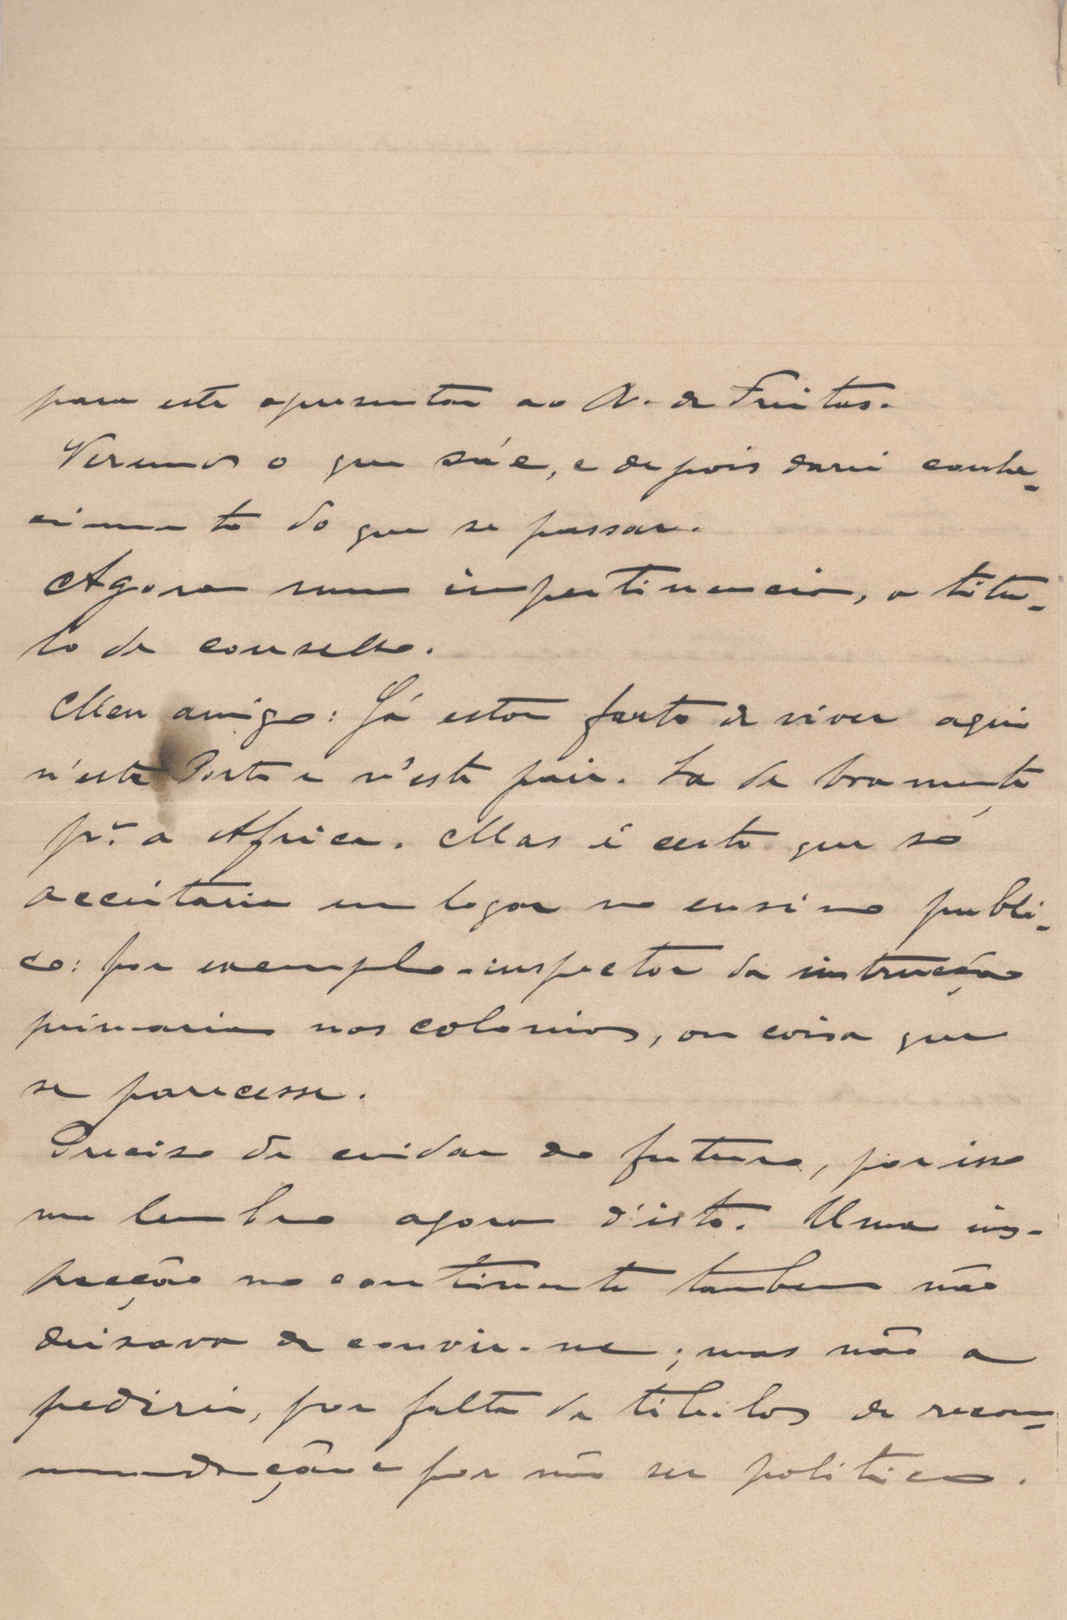 para este apresentar ao R. de Freitas.
Veremos o que sáe, e depois darei conhe-
cimento do que se passar.
Agora uma impertinencia, a titu-
lo de conselho.
Meu amigo: Já estou farto de viver aqui
n'este Porto e n'este paiz. Ia de boa mente
p.ª a Africa. Mas é certo que só
acceitaria um logar no ensino publi-
co: por exemplo-inspector da instrucção
primaria nas colonias, ou coisa que
se parecesse.
Preciso de cuidar do futuro, por isso
me lembro agora d'isto. Uma ins-
pecção no continente tambem não
deixava de convir-me; mas não a
pedirei, por falta de titulos de recom-
mendação e por não ser politico.